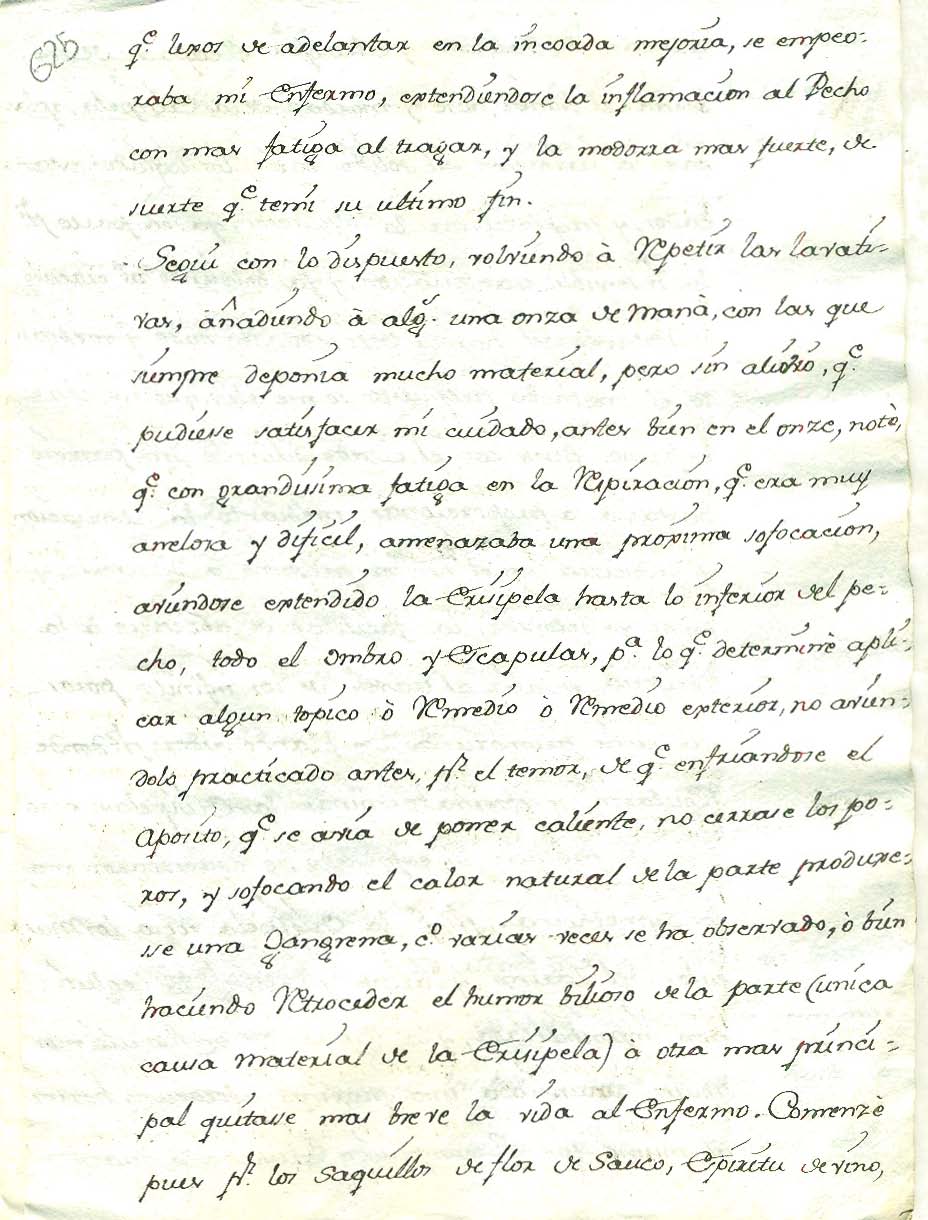 625
q.e lexos de adelantar en la incoada mejoria, se empeo-
raba mi Enfermo, extendiendose la inflamacion al Pecho
con mas fatiga al tragar, y la modorra mas fuerte, de
suerte q.e temi su ultimo fin.
Seguí con lo dispuesto, volviendo à Repetir las lavati-
vas, añadiendo à alg.a una onza de Manà, con las que
siempre deponia mucho material, pero sin alivio, q.e
pudiesse satisfacer mi cuidado, antes bien en el onze, notè,
q.e con grandisima fatiga en la Respiracion, q.e era muy
anelosa y dificil, amenazaba una proxima sofocacion,
aviendose extendido la Erisipela hasta lo inferior del pe-
cho, todo el ombro y Escapulas, p.a lo q.e determinè apli-
car algun topico ò Remedio ò Remedio exterior, no avien-
dolo practicado antes, p.r el temor, de q.e enfriandose el
Aposito, q.e se avia de poner caliente, no cerrase los po-
ros, y sofocando el calor natural de la parte produxe-
sse una Gangrena, c.o varias veces se ha observado, ò bien
haciendo Retroceder el humor bilioso de la parte (unica
causa material de la Erisipela) à otra mas princi-
pal quitasse mas breve la vida al Enfermo. Comenzè
pues p.r los saquillos de flor de Sauco, Espiritu de vino,